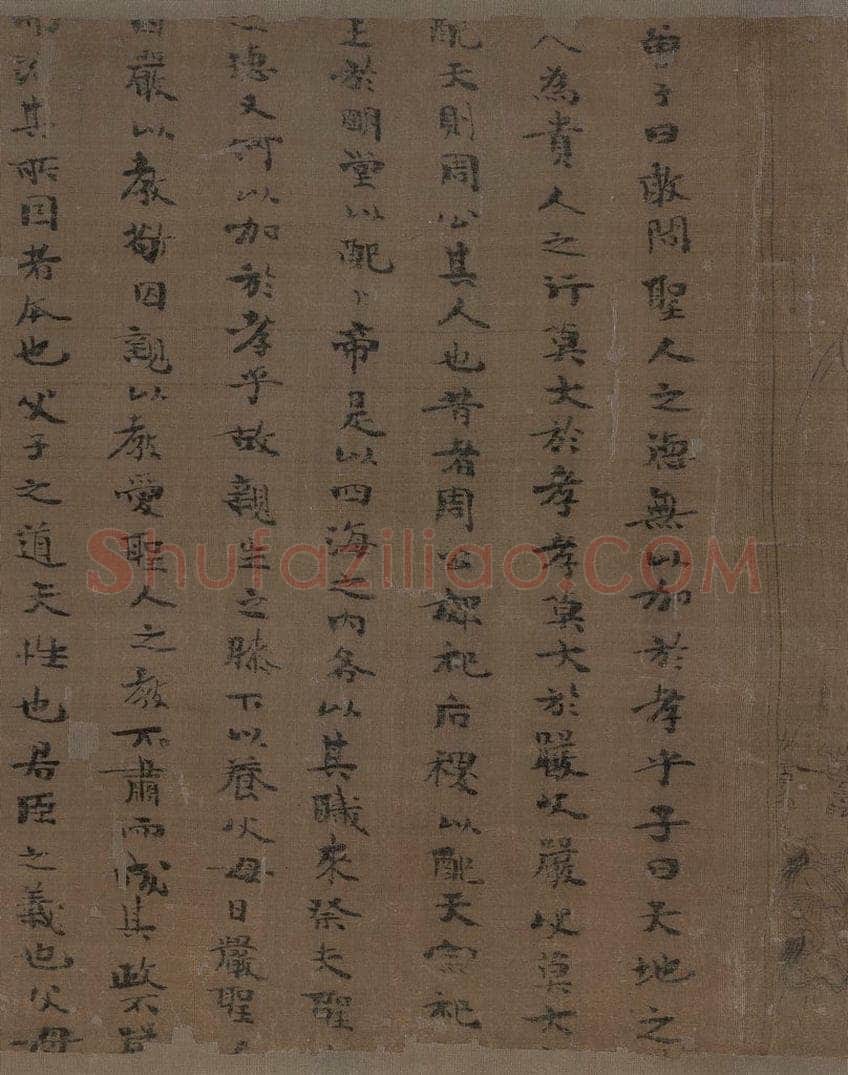 曾子曰敢問聖人之德無以加於孝乎子曰天地之
人為貴人之行莫大於孝孝莫大於嚴父嚴父莫大
配天則周公其人也昔者周公郊祀后稷以配天宗祀
王於明堂以配上帝是以四海之內各以其職來祭夫聖
之德又何以加於孝乎故親生之膝下以養父母日嚴聖人
因嚴以教敬因親以教愛聖人之教不肅而成其政不嚴
而治其所因者本也父子之道天性也君臣之義也父母
Shufaziliao.COM